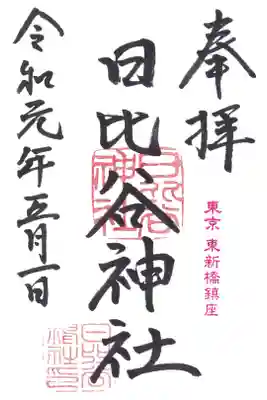 奉拝
東京 東新橋鎮座
日比谷神社
令和元年五月一日
日比谷神社